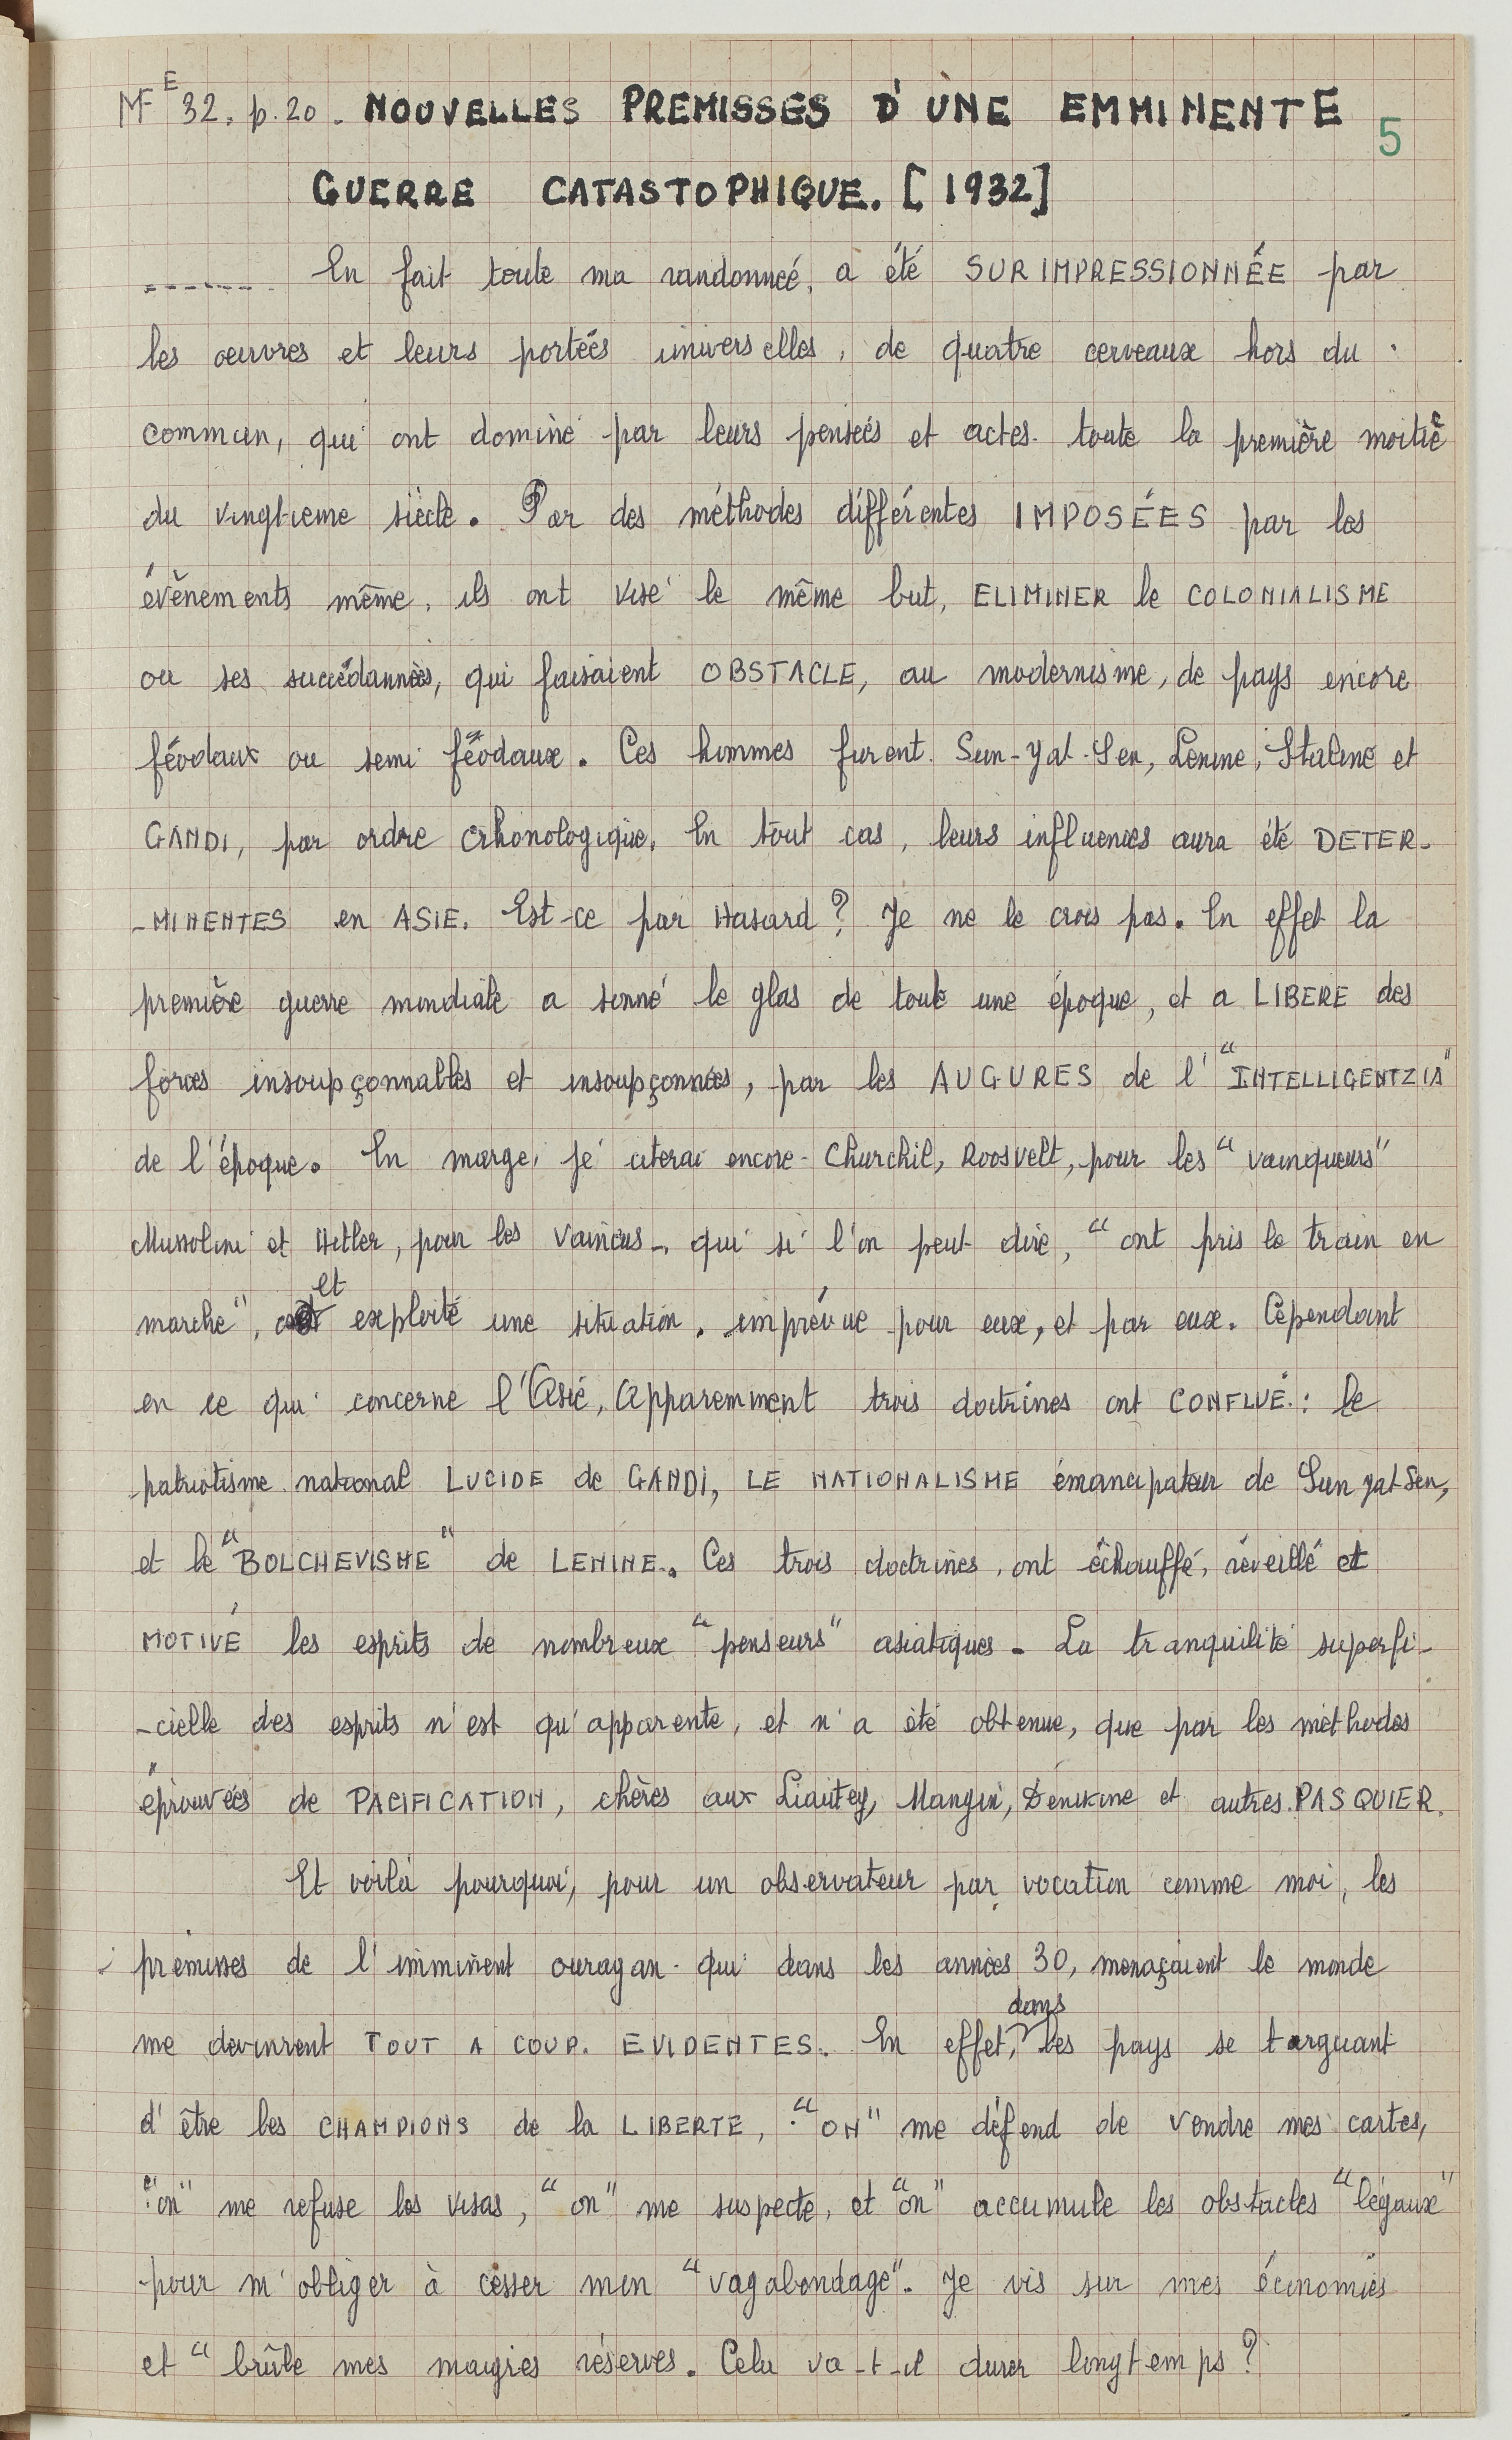 MF E 32. p. 20. NOUVELLES PREMISSES D'UNE EMMINENTE
5
GUERRE CATASTOPHIQUE. [1932]
------- En fait toute ma randonneé, a été SURIMPRESSIONNÉE par
les oeuvres et leurs porteés universelles, de quatre cerveaux hors du
commun, qui ont dominé par leurs penseés et actes toute la première moitié
du vingtieme siècle. Par des méthodes différentes IMPOSÉES par les
évènements même, ils ont visé le même but, ELIMINER le COLONIALISME
ou ses succédannées, qui faisaient OBSTACLE, au modernisme, de pays encore
féodaux ou semi féodaux. Ces hommes furent Sun-Yat-Sen, Lenine, Staline et
GANDI, par ordre crhonologique. En tout cas, leurs influences aura été DETER-
-MINENTES en ASIE. Est-ce par Hasard? Je ne le crois pas. En effet la
première guerre mondiale a sonné le glas de toute une époque, et a LIBERE des
forces insoupçonnables et insoupçonnées, par les AUGURES de l' "INTELLIGENTZIA"
de l'époque. En marge, je citerai encore - Churchil, Roosvelt, pour les "vainqueurs"
Mussolini et Hitler, pour les Vaincus -, qui si l'on peut dire, "ont pris le train en
marche", et exploité une situation, imprévue pour eux, et par eux. Cependant
en ce qui concerne l'Asie, Apparemment trois doctrines ont CONFLUÉ : le
patriotisme national LUCIDE de GANDI, LE NATIONALISME émancipateur de Sun yat Sen,
et le "BOLCHEVISME" de LENINE. Ces trois doctrines, ont échauffé, réveillé et
MOTIVÉ les esprits de nombreux "penseurs" asiatiques - La tranquilité superfi-
-cielle des esprits n'est qu'apparente, et n'a été obtenue, que par les méthodes
éprouvées de PACIFICATION, chères aux Liautey, Mangin, Dénikine et autres PASQUIER.
Et voilà pourquoi, pour un observateur par vocation comme moi, les
premisses de l'imminent ouragan qui dans les années 30, menaçaient le monde
me devinrent TOUT A COUP. EVIDENTES. En effet, dans les pays se targuant
d'être les CHAMPIONS de la LIBERTE, "ON" me défend de vendre mes cartes,
"on" me refuse les visas, "on" me suspecte, et "on" accumule les obstacles "légaux"
pour m'obliger à cesser mon "vagabondage". Je vis sur mes économies
et "brûle mes maigres réserves. Cela va-t-il durer longtemps?